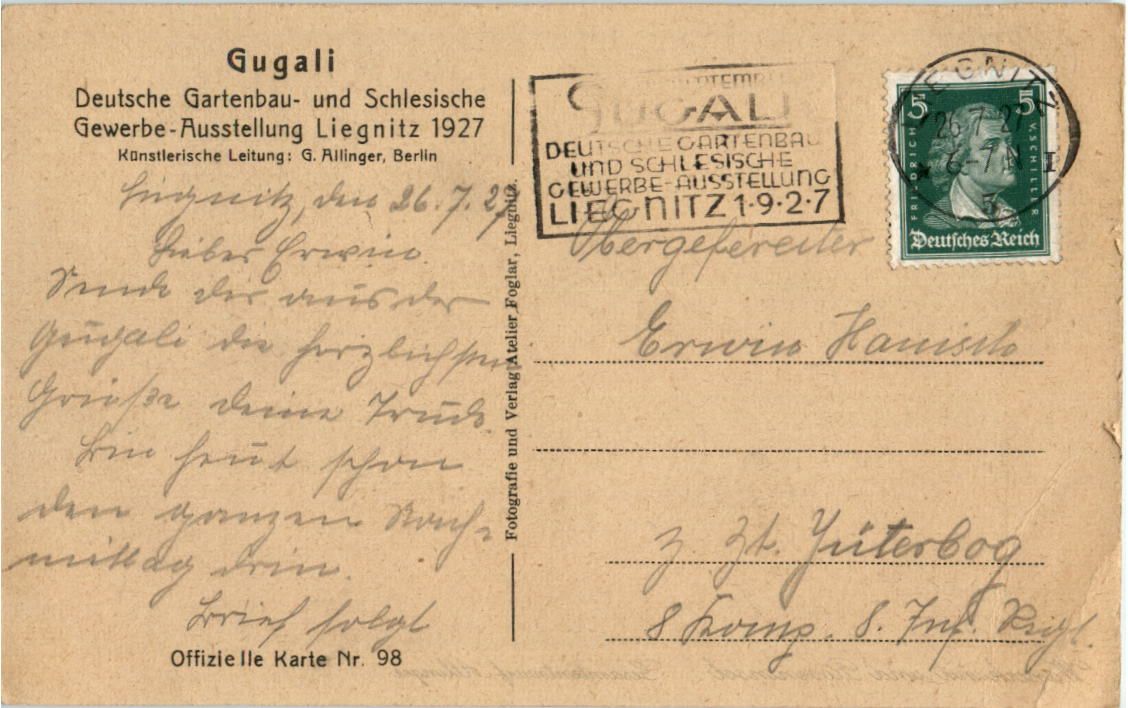 Gugali
Deutsche Gartenbau- und Schlesische
Gewerbe-Ausstellung Liegnitz 1927
Künstlerische Leitung: G. Allinger, Berlin
Liegnitz, den 26.7.27
Lieber Erwin.
Sende dir aus der
Gugali die herzlichsten
Grüße deine Trude.
Bin heut schon
den ganzen Nach-
mittag drin.
Brief folgt
Offizielle Karte Nr. 98
Fotografie und Verlag Atelier Foglar, Liegnitz.
GUGALI
DEUTSCHE GARTENBAU
UND SCHLESISCHE
GEWERBE-AUSSTELLUNG
LIEGNITZ 1·9·2·7
LIEGNITZ
26.7.27
6-7 N
5
5 5
FRIEDRICH V SCHILLER
Deutsches Reich
Obergefreiter
Erwin Hanisch
z. Zt. Jüterbog
8 Komp. 8. Inf. Regt.